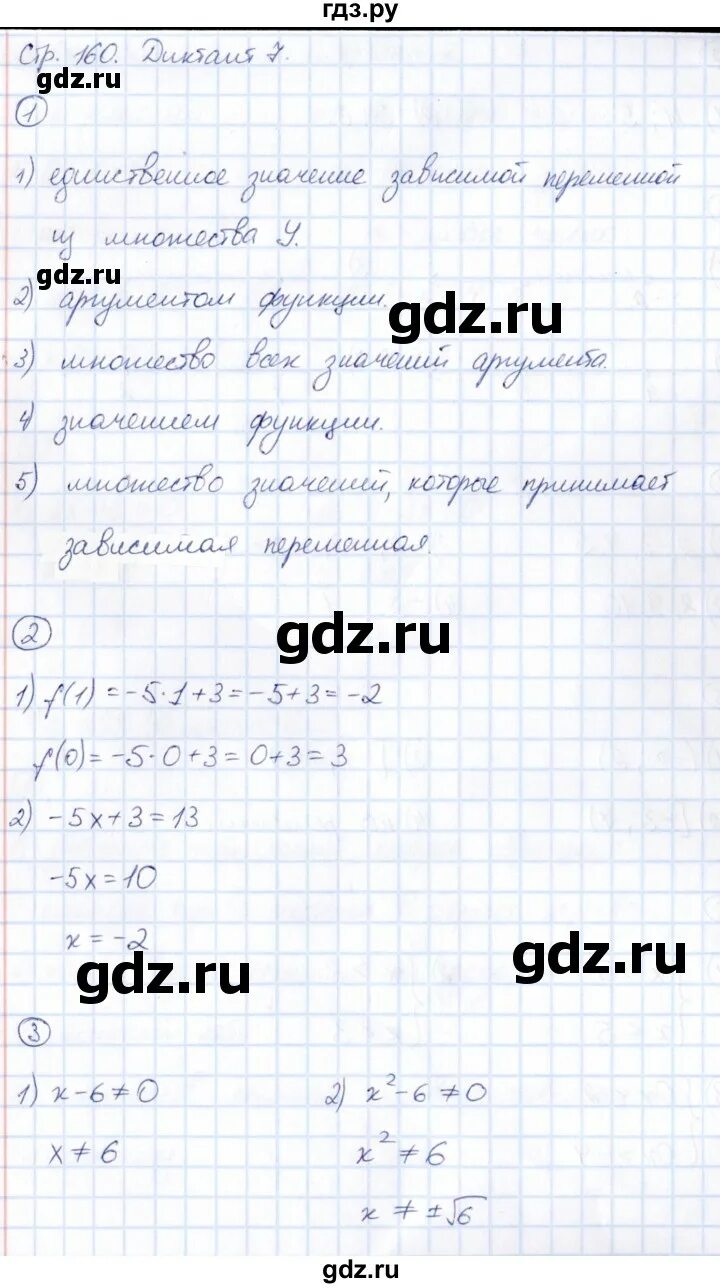 гдз.ру
Стр. 160. Диктант 7.
gdz.ru
1
1) единственное значение зависимой переменной
из множества Y.
gdz.ru
2) аргументом функции.
gdz.ru
3) множество всех значений аргумента.
4) значением функции.
5) множество значений, которые принимает
зависимая переменная.
2
gdz.ru
1) f(1) = -5·1+3 = -5+3 = -2
f(0) = -5·0+3 = 0+3 = 3
2) -5x+3=13
-5x=10
x = -2
gdz.ru
gdz.ru
3
1) x-6≠0 2) x²-6≠0
x≠6 x²≠6
x ≠ ±√6
gdz.ru